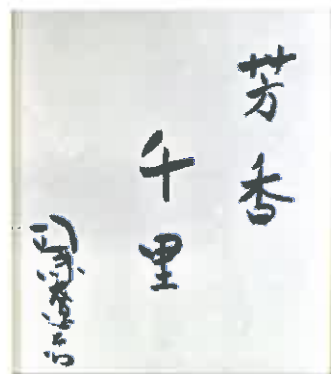 芳香
千里